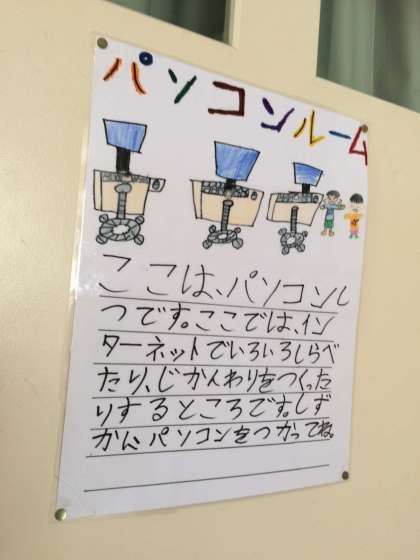 パソコンルーム
ここは、パソコンし
つです。ここでは、イン
ターネットでいろいろしらべ
たり、じかんわりをつくった
りするところです。しず
かん、パソコンをつかってね。